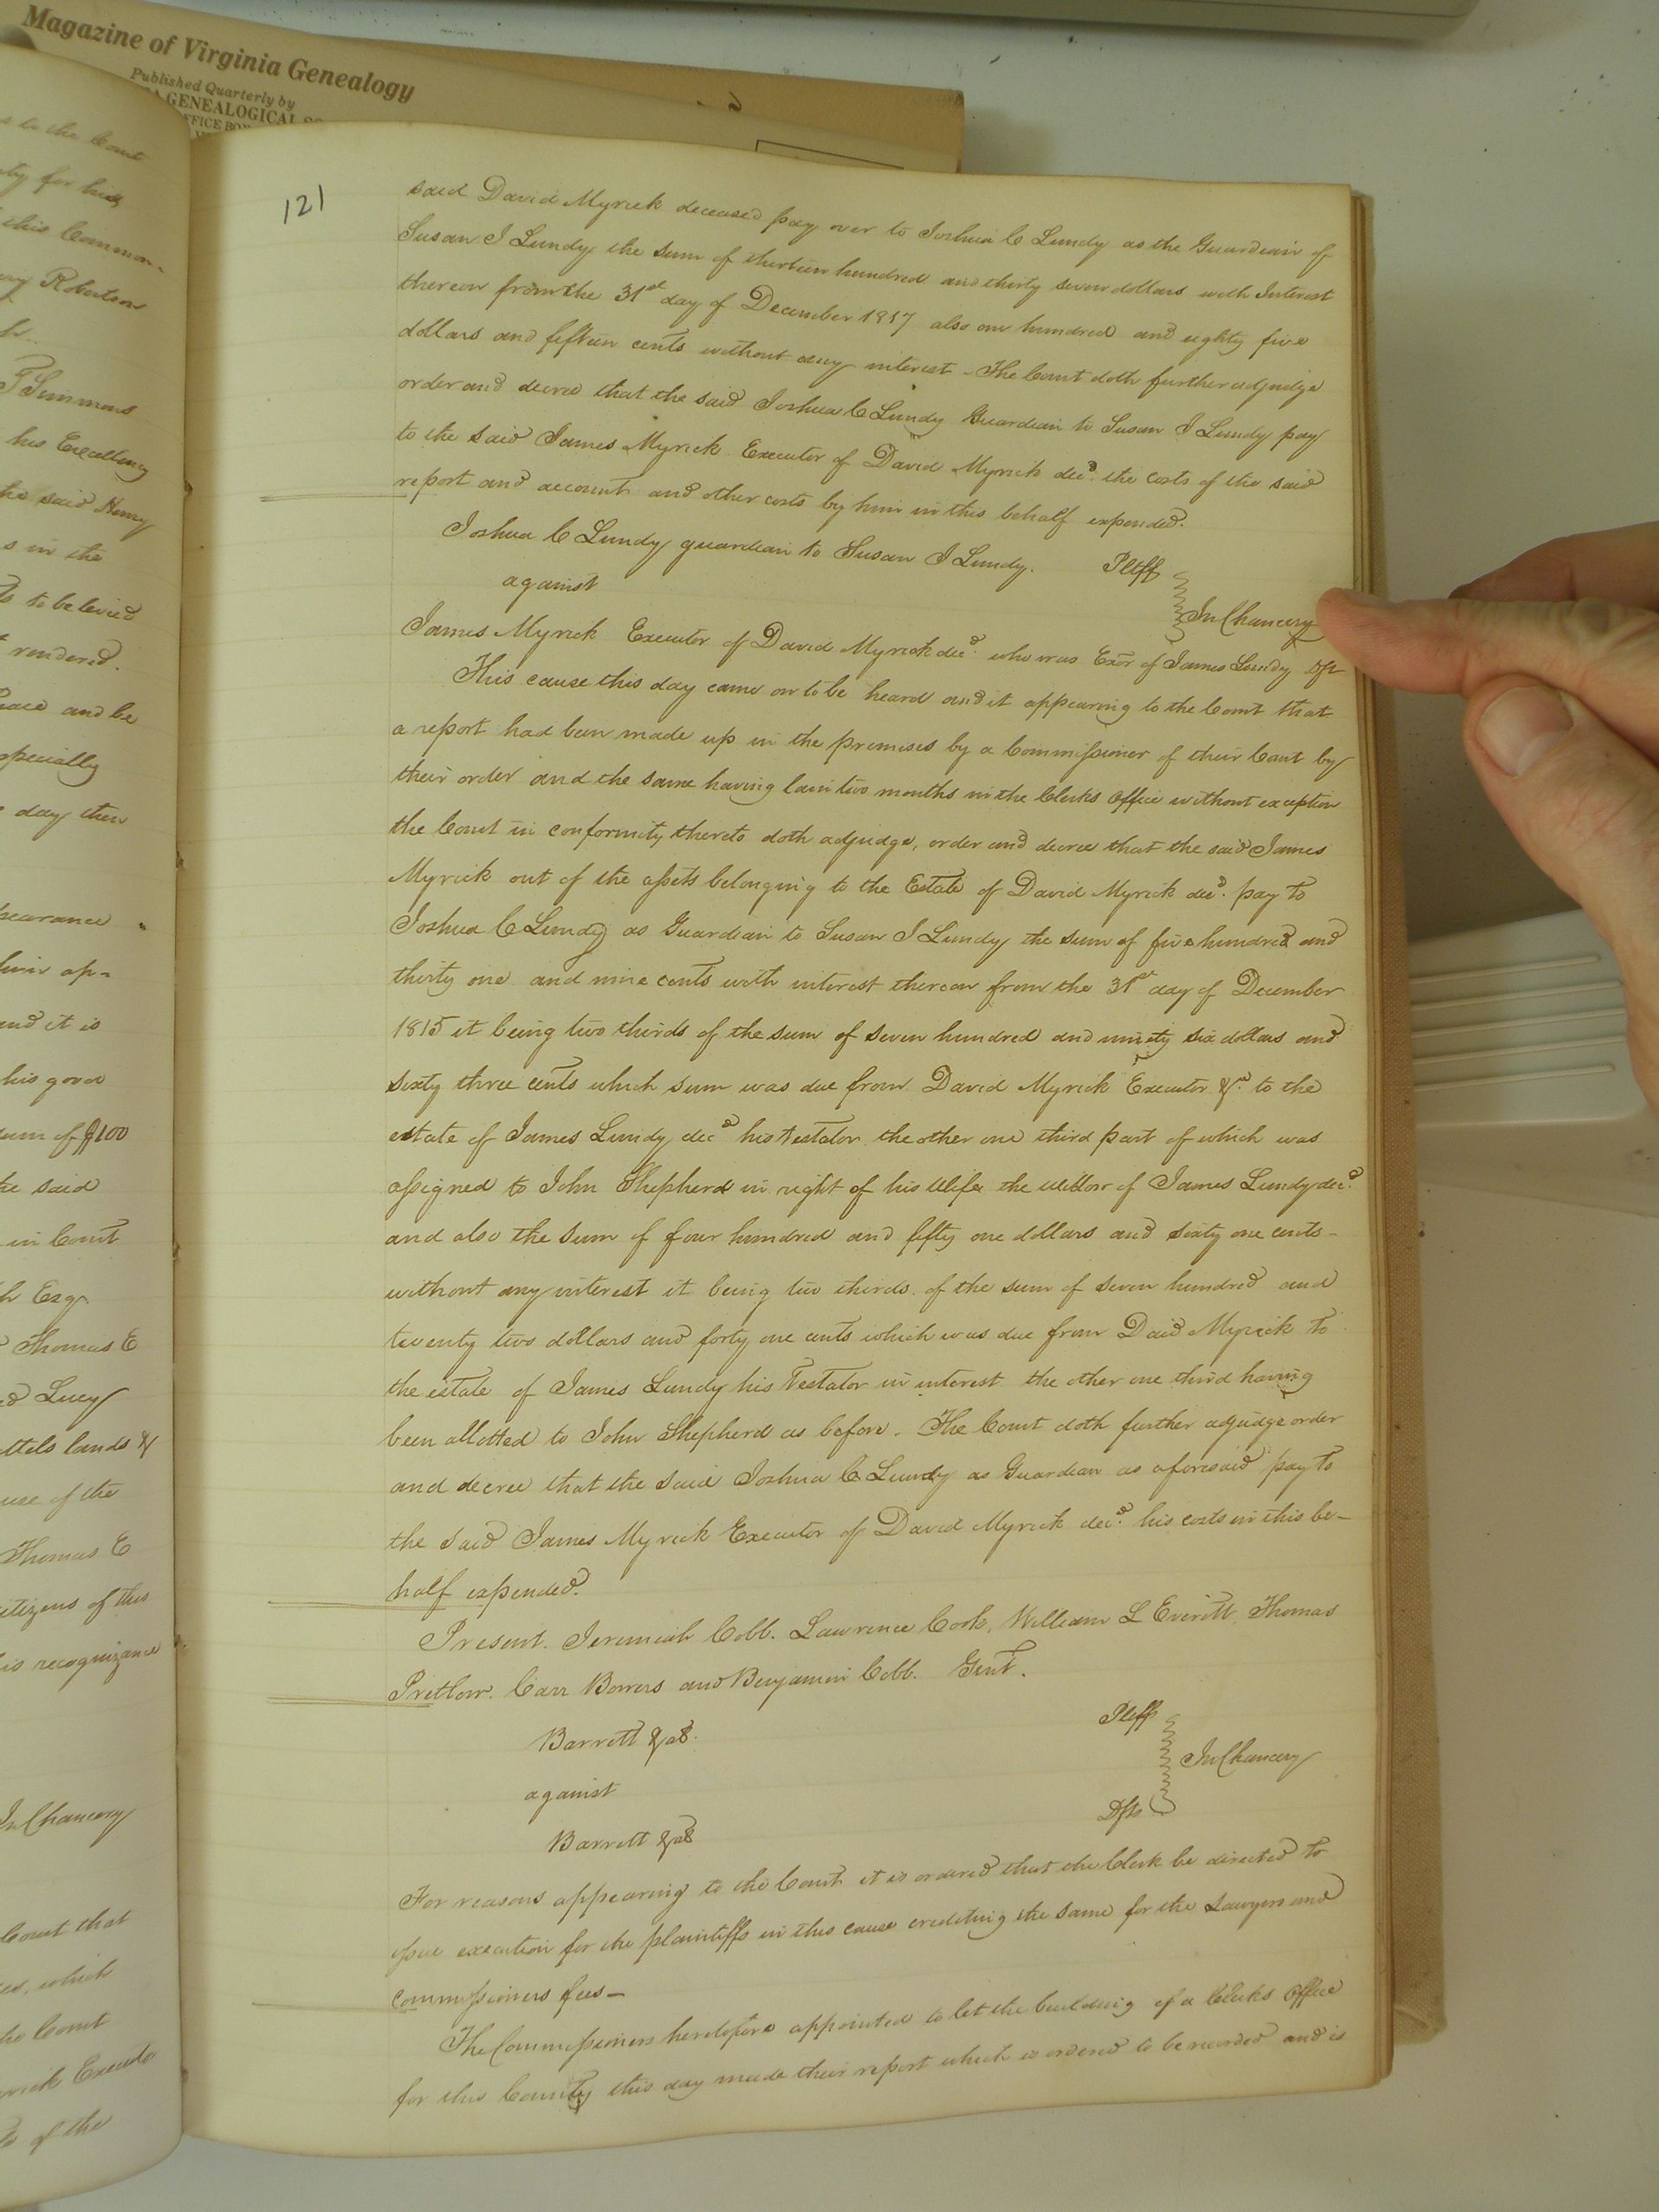 Magazine of Virginia Genealogy
Published Quarterly by
GENEALOGICAL
OFFICE BOX
s to the Court
ty for his
this Common-
Robertson
T Simmons
his Excellency
he said Henry
s in the
to be levied
rendered.
and be
specially
day then
pearance
their ap=
and it is
his good
sum of $100
the said
in Court
Esqr
Thomas E
Lucy
ttels lands &
use of the
Thomas E
itizens of this
is recognizance
In Chancery
Court that
which
the Court
Myrick Executor
of the
121
said David Myrick deceased pay over to Joshua C Lundy as the Guardian of
Susan J Lundy the sum of thirteen hundred and thirty seven dollars with Interest
thereon from the 31st day of December 1817 also one hundred and eighty five
dollars and fifteen cents without any interest - The Court doth further adjudge
order and decree that the said Joshua C Lundy Guardian to Susan J Lundy pay
to the said James Myrick Executor of David Myrick decd. the costs of the said
report and account and other costs by him in this behalf expended.
Joshua C Lundy guardian to Susan J Lundy. Pltff
against
In Chancery
James Myrick Executor of David Myrick decd. who was Exor of James Lundy Dft
This cause this day came on to be heard and it appearing to the Court that
a report had been made up in the premises by a Commissioner of their Court by
their order and the same having lain two months in the Clerks Office without exception
the Court in conformity thereto doth adjudge, order and decree that the said James
Myrick out of the assets belonging to the Estate of David Myrick decd. pay to
Joshua C Lundy as Guardian to Susan J Lundy the sum of five hundred and
thirty one and nine cents with interest thereon from the 31st day of December
1815 it being two thirds of the sum of seven hundred and ninety six dollars and
sixty three cents which sum was due from David Myrick Executor &c. to the
estate of James Lundy decd his testator the other one third part of which was
assigned to John Shepherd in right of his Wife the Widow of James Lundy decd.
and also the sum of four hundred and fifty one dollars and sixty one cents -
without any interest it being two thirds of the sum of seven hundred and
twenty two dollars and forty one cents which was due from Daid Myrick to
the estate of James Lundy his Testator in interest the other one third having
been allotted to John Shepherd as before. The Court doth further adjudge order
and decree that the said Joshua C Lundy as Guardian as aforesaid pay to
the said James Myrick Executor of David Myrick decd. his costs in this be-
half expended.
Present. Jeremiah Cobb. Lawrence Cook, William L Everitt Thomas
Pretlow. Carr Bowers and Benjamin Cobb. Gent.
Barrett & als. Pltffs
against In Chancery
Barrett & als Dfts
For reasons appearing to the Court it is ordered that the Clerk be directed to
issue execution for the plaintiffs in this cause crediting the same for the Lawyers and
commissioners fees -
The Commissioners heretofore appointed to let the building of a Clerks Office
for this County this day made their report which is ordered to be recorded and is